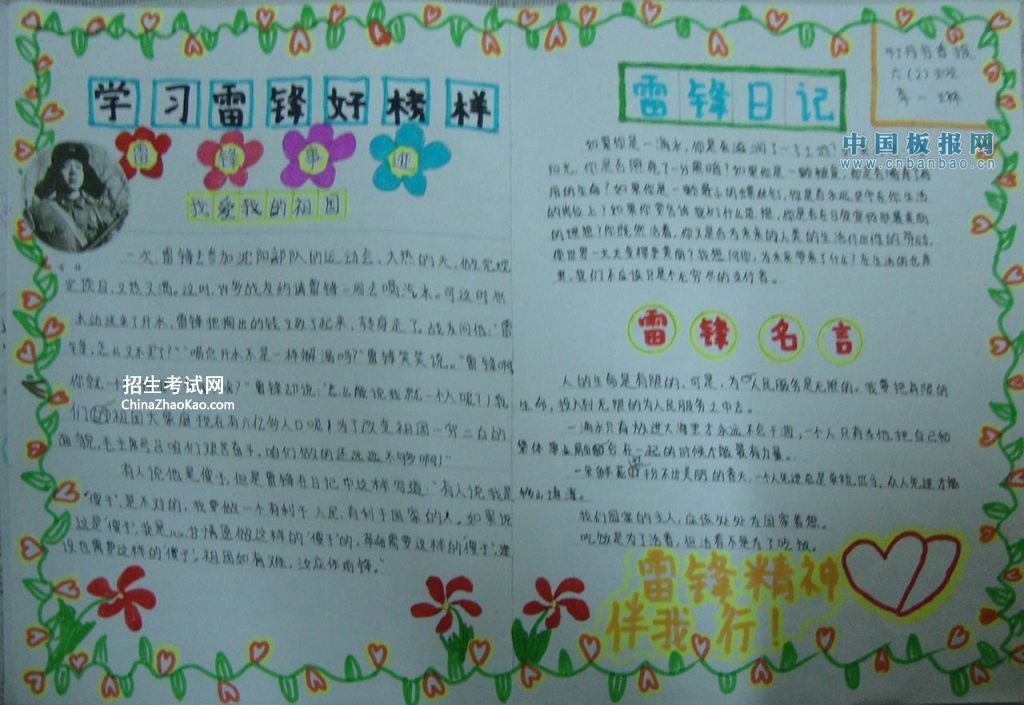 学习雷锋好榜样
雷锋事迹
我爱我的祖国
一次,雷锋去参加沈阳部队的运动会、大热的天,做完规
定项目,又热又渴。这时,许多战友约请雷锋一同去喝汽水。可这时
水站送来了开水,雷锋把掏出的钱又数了起来,转身走了。战友问他:"雷
锋,怎么又不买了?""喝完开水不是一样解渴吗?"雷锋笑笑说。"雷锋啊
你就一个 雷锋却说:"怎么能说我就一个人呢?
们的祖国大家庭现在有六亿多人口呢!为了改变祖国一穷二白的
面貌,毛主席号召咱们艰苦奋斗,咱们做的还远远不够啊!"
有人说他是傻子,但是雷锋在日记中这样写道:"有人说我是
"傻子",是不对的,我要做一个有利于人民,有利于国家的人。如果说
这是"傻子",我是 甘情愿做这样的"傻子"的,革命需要这样的"傻子",建
设也需要这样的"傻子"。祖国如有难,汝应作前锋。"
牡丹
六(2)班
李一
雷锋日记
如果你是一滴水,你是否滋润了一寸土地?
阳光,你是否照亮了一分黑暗?如果你是一颗粮食,你是否哺育了有
用的生命?如果你是一颗最小的螺丝钉,你是否永远坚守在你生活
的岗位上?如果你要告诉我们什么思想,你是否在日夜宣扬那最美丽
的理想?你既然活着,你又是否为未来的人类的生活付出你的劳动,
使世界一天天变得更美丽?我想问你,为未来带来了什么?在生活的仓库
里,我们不应该只是个无穷尽的支付者。
雷锋名言
人的生命是有限的,可是,为人民服务是无限的,我要把有限的
生命,投入到无限的为人民服务之中去。
一滴水只有放进大海里才永远不会干涸,一个人只有当他把自己和
集体事业融合在一起的时候才能最有力量。
一朵鲜花打扮不出美丽的春天,一个人先进总是单枪匹马,众人先进才能
移山填海。
我们国家的主人,应该处处为国家着想。
吃饭是为了活着,但活着不是为了吃饭。
雷锋精神
伴我行!
中国板报网
www.cnbanbao.cn
招生考试网
ChinaZhaoKao.com